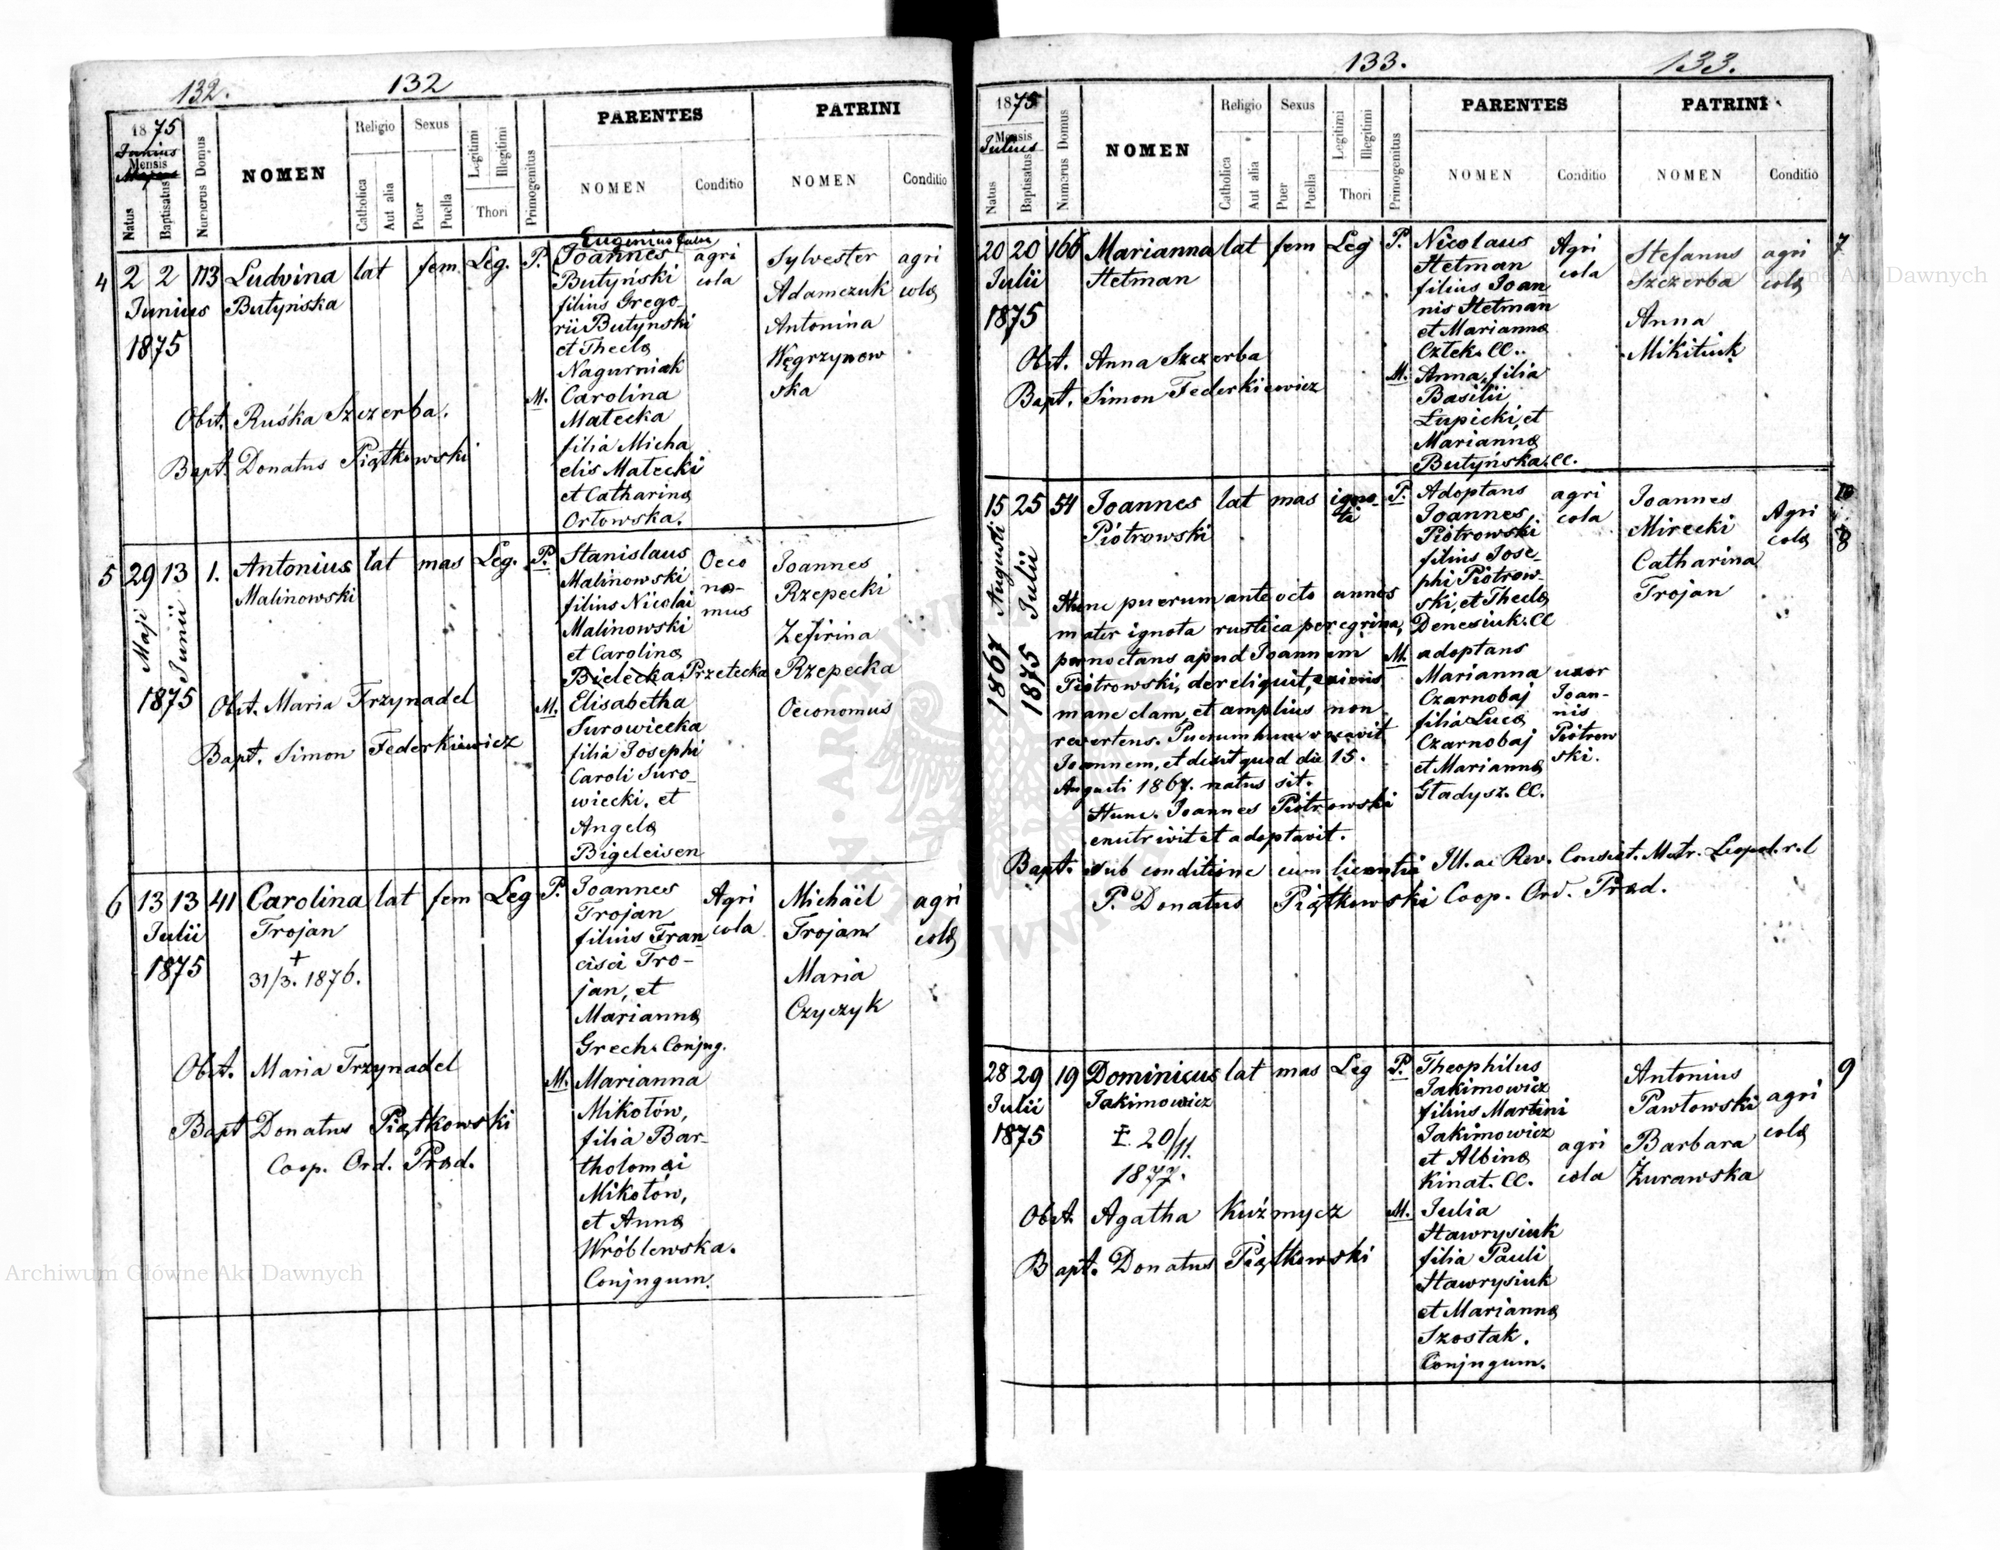 132. 132
1875
Junius
Mensis
Natus
Baptisatus
Numerus Domus
NOMEN
Religio
Catholica
Aut alia
Sexus
Puer
Puella
Legitimi
Illegitimi
Thori
Primogenitus
PARENTES
NOMEN
Conditio
PATRINI
NOMEN
Conditio
4 2 2 113 Ludvina lat fem. Leg. P. Joannes agri Sylvester agri
Junius Butyńska Butyński cola Adamczuk colæ
1875 filius Grego Antonina
rii Butynski Węgrzynow
et Theclæ ska
Nagurniak
M. Carolina
Obst. Ruśka Szczerba. Małecka
filia Micha
Bapt. Donatus Piątkowski elis Małecki
et Catharinæ
Orłowska.
5 29 13 1. Antonius lat mas Leg. P. Stanislaus Oeco Joannes
Maji Junii Malinowski Malinowski no- Rzepecki
filius Nicolai mus Zefirina
Malinowski
et Carolinæ
1875 Bielecka Przetecka Rzepecka
Obst. Maria Trzynadel M. Elisabetha Oeconomus
Surowiecka
Bapt. Simon Federkiewicz filia Josephi
Caroli Suro-
wiecki, et
Angelæ
Bigeleisen
6 13 13 41 Carolina lat fem Leg P. Joannes Agri Michaël agri
Julii Trojan Trojan cola Trojan colæ
1875 † filius Fran
31/3. 1876. cisci Tro- Maria
jan, et Czyczyk
Mariannæ
Grech. Conjug.
Obst. Maria Trzynadel M. Marianna
Mikołów,
Bapt Donatus Piątkowski filia Bar-
Coop. Ord. Præd. tholomæi
Mikołów,
et Annæ
Wróblewska.
Conjugum.
133. 133.
1875
Mensis
Julius
Natus
Baptisatus
Numerus Domus
NOMEN
Religio
Catholica
Aut alia
Sexus
Puer
Puella
Legitimi
Illegitimi
Thori
Primogenitus
PARENTES
NOMEN
Conditio
PATRINI
NOMEN
Conditio
20 20 166 Marianna lat fem Leg P. Nicolaus Agri Stefanus agri 7
Julii Hetman Hetman cola Szczerba colæ
1875 filius Joan Anna
nis Hetman Mikituk
et Mariannæ
Obst. Anna Szczerba Człek. CC.
Bapt. Simon Federkiewicz M. Anna, filia
Basilii
Łupicki, et
Mariannæ
Butyńska. CC.
15 25 54 Joannes lat mas igno- P. Adoptans agri Joannes Agri
Augusti Julii Piotrowski ti Joannes cola Mirecki colæ 8
1867 1875 Piotrowski Catharina
filius Jose- Trojan
phi Piotrow-
Hunc puerum ante octo annos ski, et Theclæ
mater ignota rustica peregrina, Denesiuk. CC
pernoctans apud Joannem M. adoptans
Piotrowski, dereliquit, Marianna uxor
mane clam, et amplius non Czarnobaj Joan-
revertens. Puerum hunc vocavit filia Lucæ nis
Joannem, et dixit quod die 15. Czarnobaj Piotrow
Augusti 1867. natus sit. et Mariannæ ski.
Hunc. Joannes Piotrowski Gładysz. CC.
enutrivit et adoptavit.
Bapt. sub conditione cum licentia Ill. ac Rev. Consist. Metr. Leopol. r. l
P. Donatus Piątkowski Coop. Ord. Præd.
28 29 19 Dominicus lat mas Leg P. Theophilus Antonius 9
Julii Jakimowicz Jakimowicz Pawłowski agri
1875 filius Martini Barbara colæ
20/11. Jakimowicz agri Żurawska
1877. et Albinæ cola
Kinat. CC.
Obst. Agatha Kuźmycz M. Julia
Hawrysiuk
Bapt. Donatus Piątkowski filia Pauli
Hawrysiuk
et Mariannæ
Szostak.
Conjugum.
Archiwum Główne Akt Dawnych
Archiwum Główne Akt Dawnych